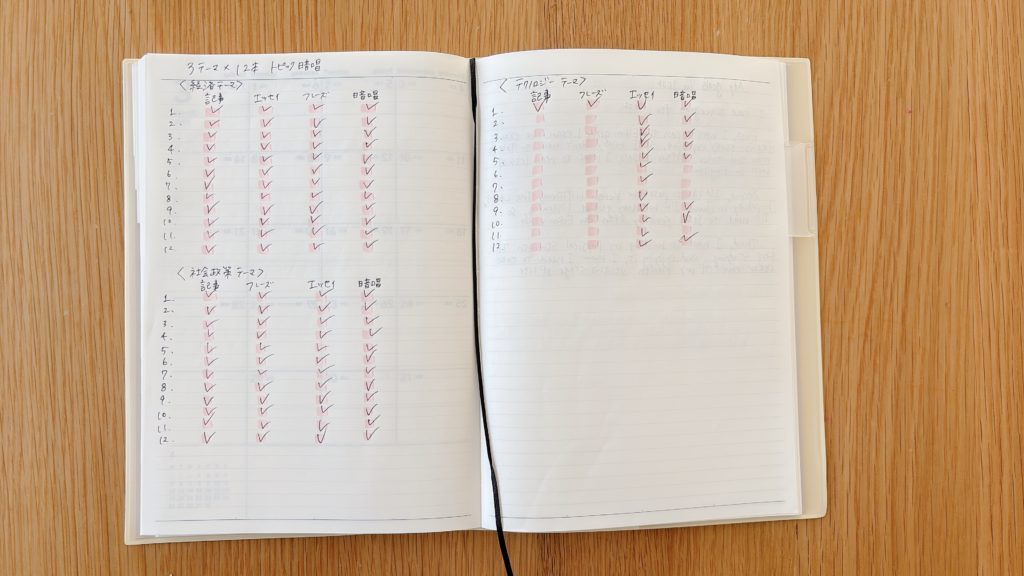 3テーマ×12本 トピック暗唱
〈経済テーマ〉
記事 エッセイ フレーズ 暗唱
1.
2.
3.
4.
5.
6.
7.
8.
9.
10.
11.
12.
〈社会政策テーマ〉
記事 フレーズ エッセイ 暗唱
1.
2.
3.
4.
5.
6.
7.
8.
9.
10.
11.
12.
〈テクノロジーテーマ〉
記事 フレーズ エッセイ 暗唱
1.
2.
3.
4.
5.
6.
7.
8.
9.
10.
11.
12.